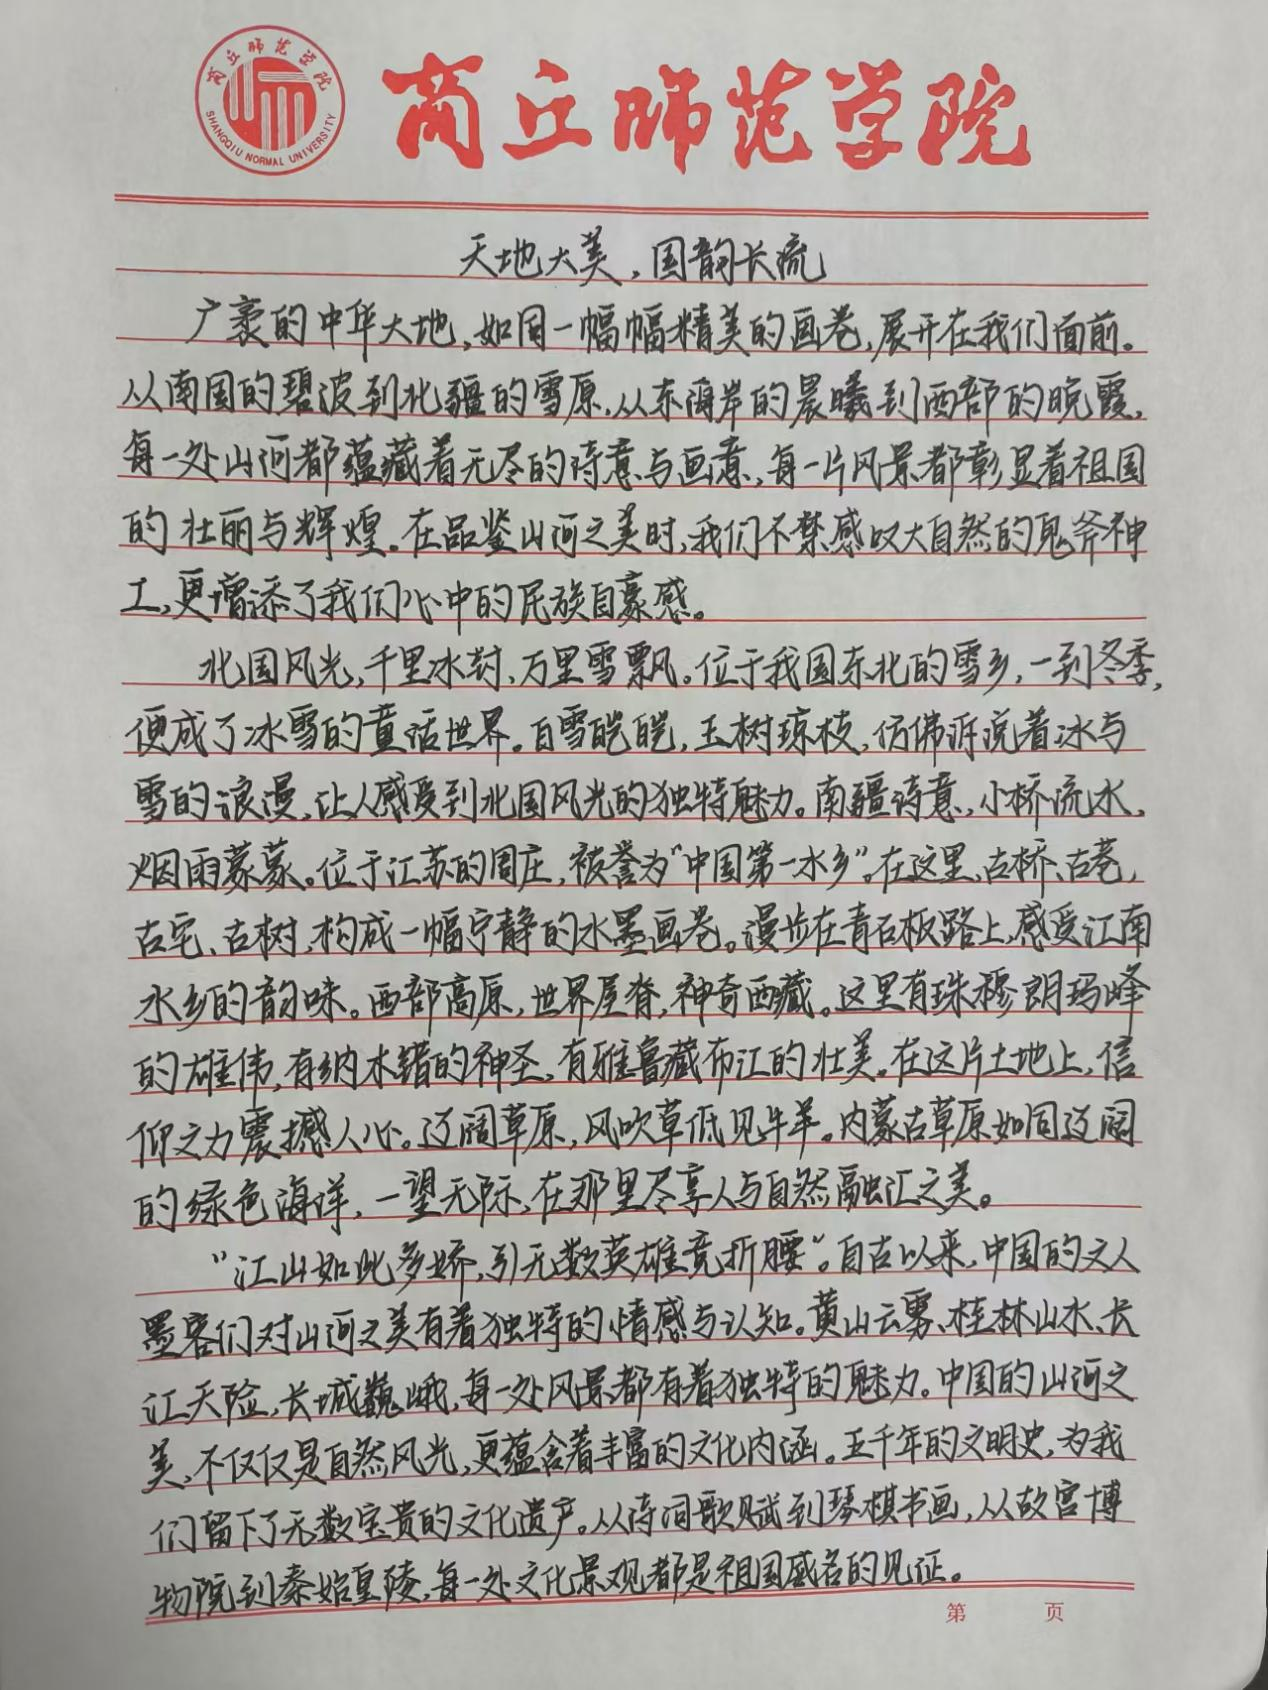 商丘师范学院
SHANGQIU NORMAL UNIVERSITY
商丘师范学院
天地大美，国韵长流
广袤的中华大地，如同一幅幅精美的画卷，展开在我们面前。
从南国的碧波到北疆的雪原，从东海岸的晨曦到西部的晚霞，
每一处山河都蕴藏着无尽的诗意与画意，每一片风景都彰显着祖国
的壮丽与辉煌。在品鉴山河之美时，我们不禁感叹大自然的鬼斧神
工，更增添了我们心中的民族自豪感。
北国风光，千里冰封，万里雪飘。位于我国东北的雪乡，一到冬季，
便成了冰雪的童话世界。白雪皑皑，玉树琼枝，仿佛诉说着冰与
雪的浪漫，让人感受到北国风光的独特魅力。南疆诗意，小桥流水，
烟雨蒙蒙。位于江苏的周庄，被誉为“中国第一水乡”。在这里、古桥、古巷，
古宅、古树，构成一幅宁静的水墨画卷。漫步在青石板路上，感受江南
水乡的韵味。西部高原，世界屋脊，神奇西藏。这里有珠穆朗玛峰
的雄伟，有纳木错的神圣，有雅鲁藏布江的壮美。在这片土地上，信
仰之力震撼人心。辽阔草原，风吹草低见牛羊。内蒙古草原如同辽阔
的绿色海洋，一望无际，在那里尽享人与自然融汇之美。
“江山如此多娇，引无数英雄竞折腰”。自古以来，中国的文人
墨客们对山河之美有着独特的情感与认知。黄山云雾、桂林山水、长
江天险，长城巍峨，每一处风景都有着独特的魅力。中国的山河之
美，不仅仅是自然风光，更蕴含着丰富的文化内涵。五千年的文明史，为我
们留下了无数宝贵的文化遗产。从诗词歌赋到琴棋书画，从故宫博
物院到秦始皇陵，每一处文化景观都是祖国盛名的见证。
第 页